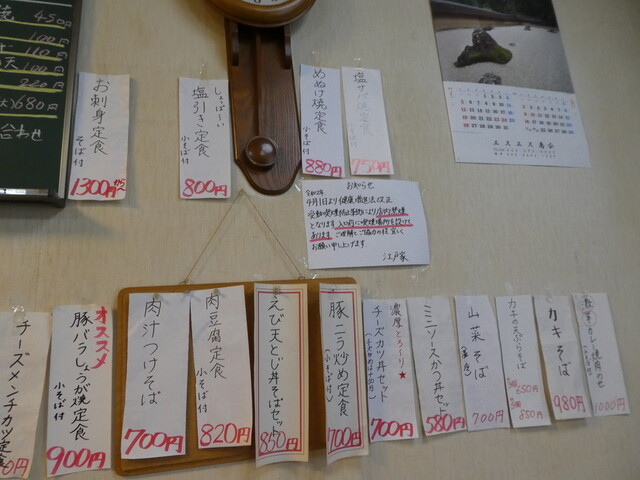 450円
100円
110
天 100円
220
680円
合わせ
お刺身定食
そば付
1300円から
しょっぱ〜い
塩引き定食
小そば付
800円
めぬけ焼定食
小そば付
880円
塩サバ焼定食
750円
エスエス商会
お知らせ
令和2年
4月1日より健康増進法改正
受動喫煙防止対策により店内禁煙
となります。入口前に喫煙場所を設けて
おります。ご理解とご協力の程宜しく
お願い申し上げます
江戸家
チーズメンチカツ定食
0円
オススメ
豚バラしょうが焼定食
小そば付
900円
肉汁つけそば
700円
肉豆腐定食
小そば付
820円
えび天とじ丼そばセット
850円
豚ニラ炒め定食
(小そば付)
700円
濃厚とろ〜り★
チーズカツ丼セット
700円
ミニソースかつ丼セット
580円
山菜そば
700円
カキの天ぷらそば
650円
850円
カキそば
980円
カレー焼肉のせ
1000円